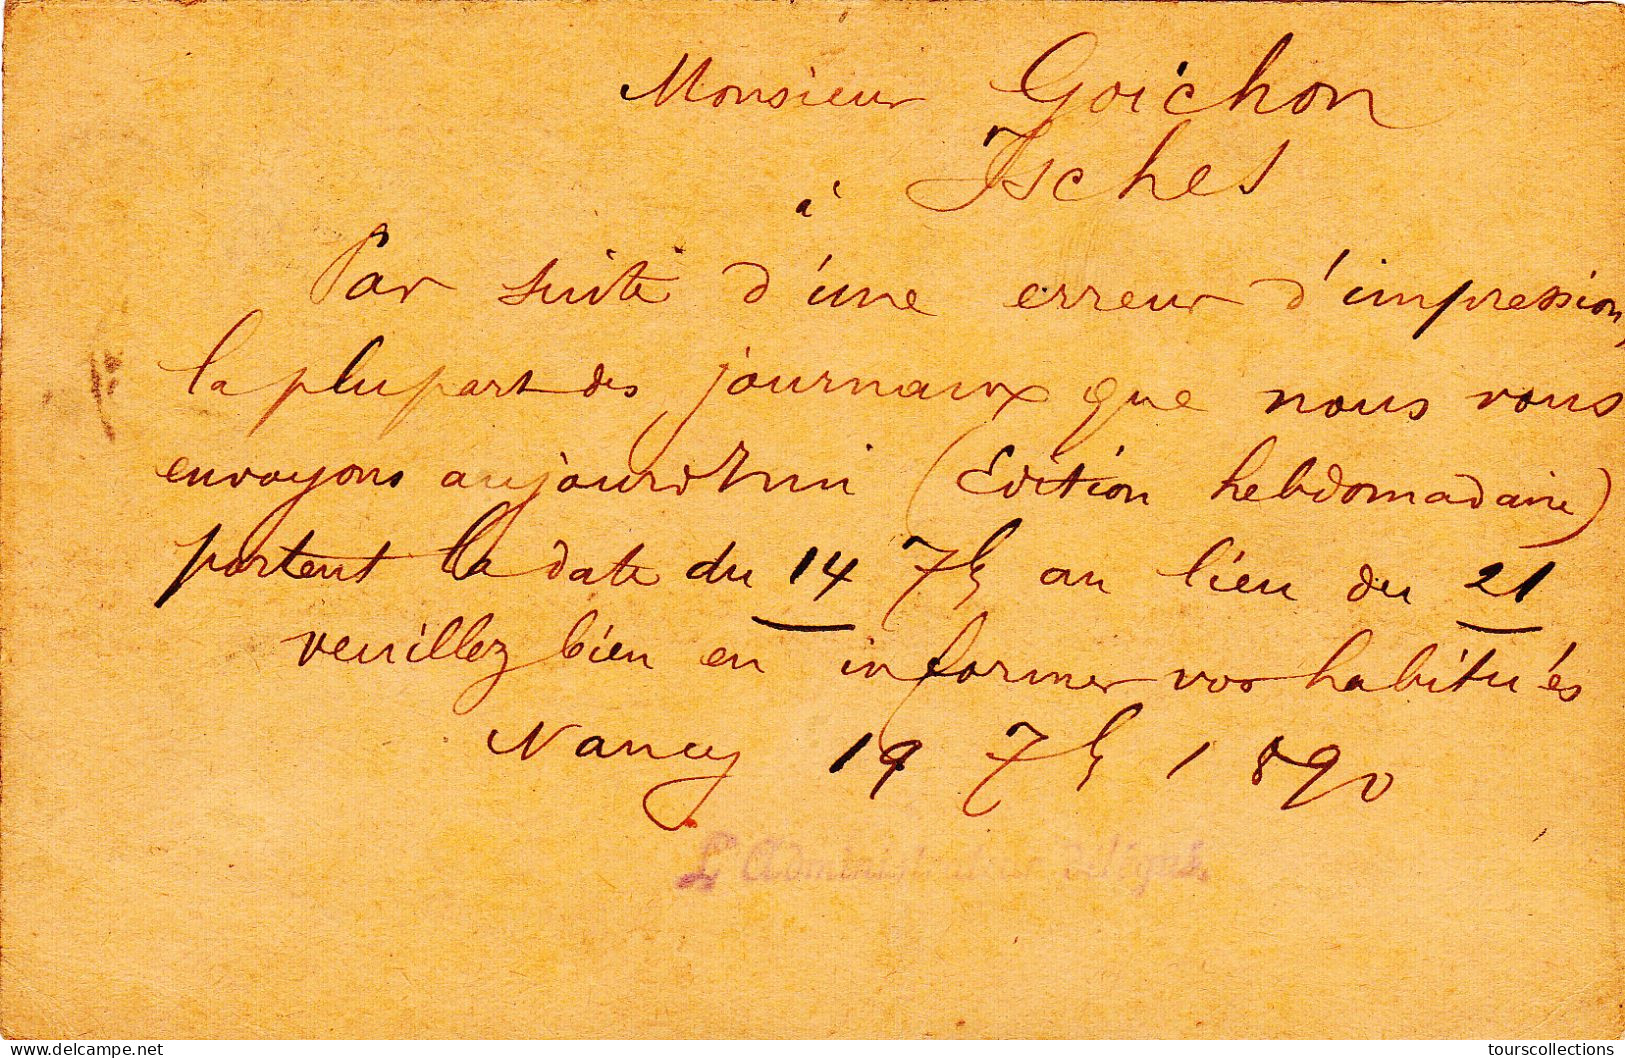 Monsieur Goichon
à Isches
Par suite d'une erreur d'impression,
la plupart des journaux que nous vous
envoyons aujourd'hui (Edition hebdomadaire)
portent la date du 14 7b au lieu du 21
veuillez bien en informer vos habitués
Nancy 19 7b 1890
L'Administrateur Délégué.
delcampe.net
tourscollections